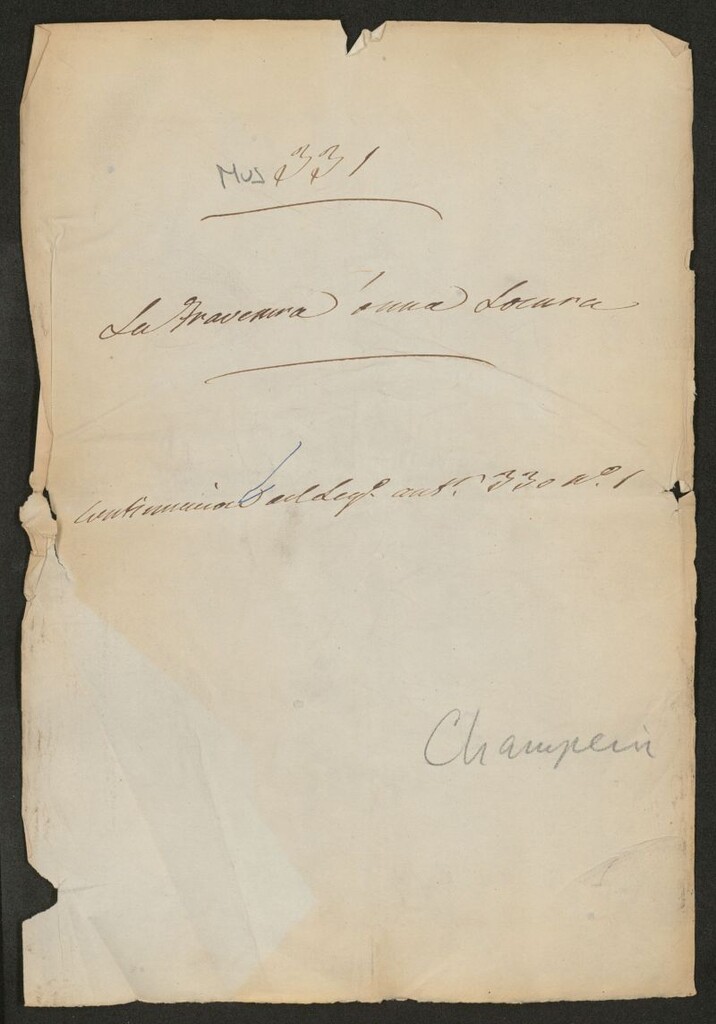 Mus 331
La Travesura ó una Locura
Continuacion del Leg.º ant.r 330 nº. 1
Champein